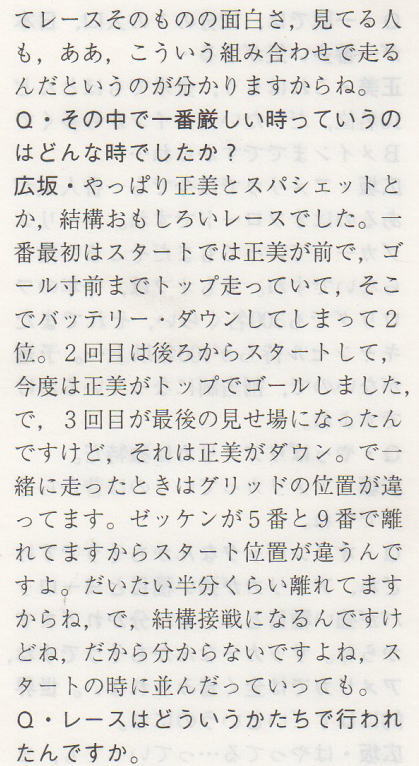 てレースそのものの面白さ，見てる人
も，ああ，こういう組み合わせで走る
んだというのが分かりますからね。
Q・その中で一番厳しい時っていうの
はどんな時でしたか？
広坂・やっぱり正美とスパシェットと
か，結構おもしろいレースでした。一
番最初はスタートでは正美が前で，ゴ
ール寸前までトップ走っていて，そこ
でバッテリー・ダウンしてしまって２
位。２回目は後ろからスタートして，
今度は正美がトップでゴールしました，
で，３回目が最後の見せ場になったん
ですけど，それは正美がダウン。で一
緒に走ったときはグリッドの位置が違
ってます。ゼッケンが５番と９番で離
れてますからスタート位置が違うんで
すよ。だいたい半分くらい離れてます
からね，で，結構接戦になるんですけ
どね，だから分からないですよね，ス
タートの時に並んだっていっても。
Q・レースはどういうかたちで行われ
たんですか。